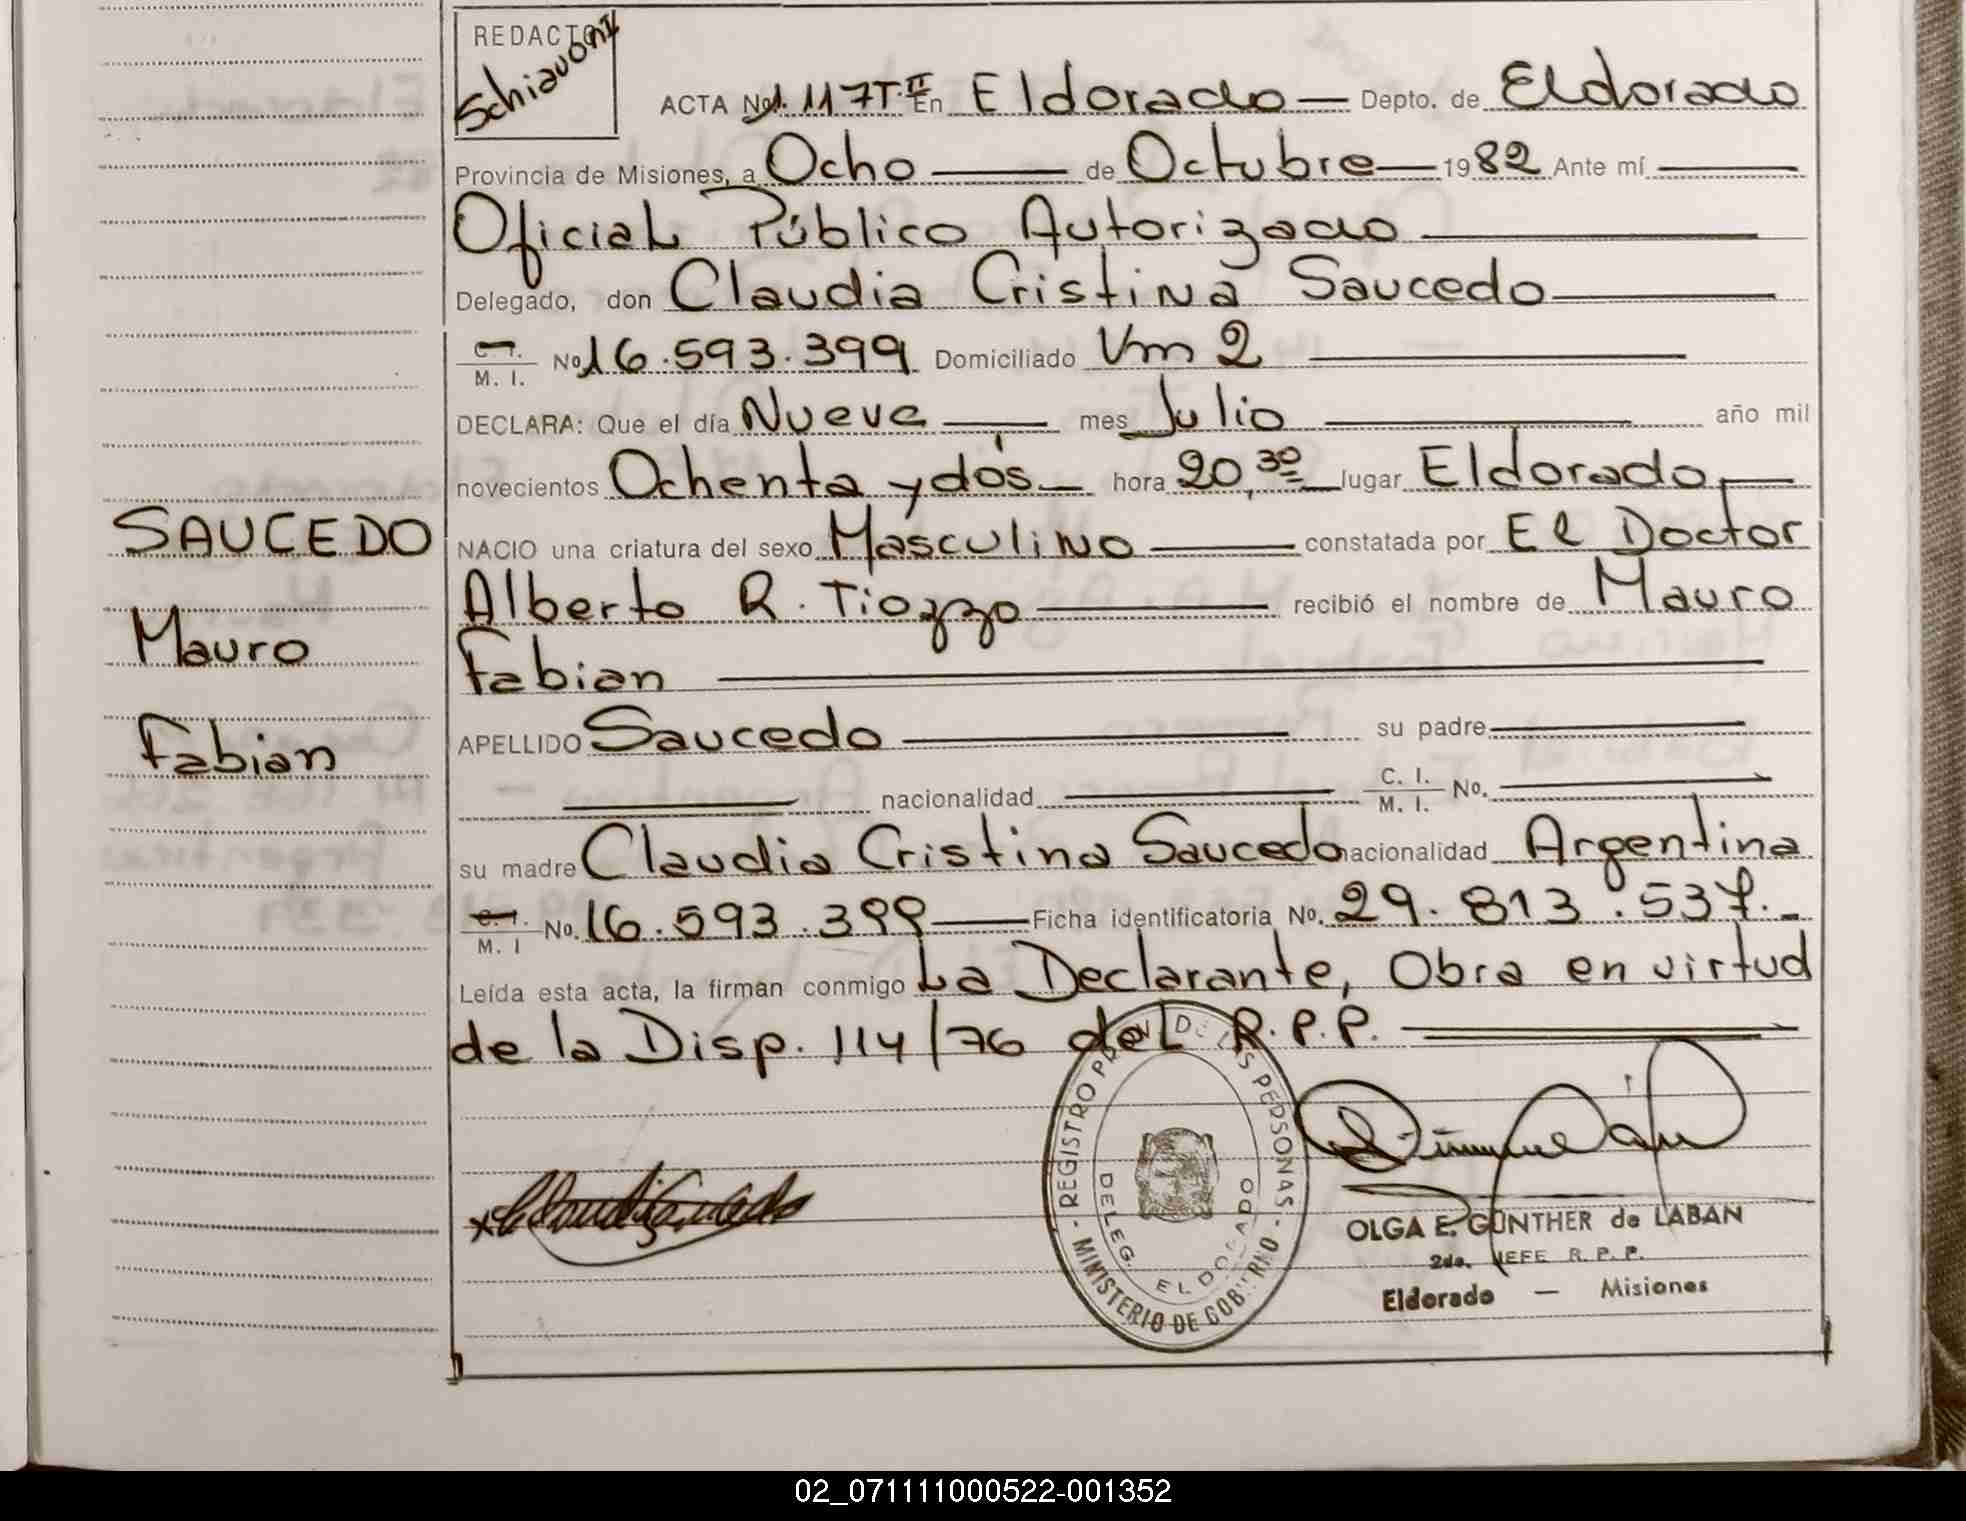 REDACTO
Schiavoni
ACTA No 1.117 T. II En Eldorado — Depto. de Eldorado
Provincia de Misiones, a Ocho — de Octubre — 1982 Ante mí —
Oficial Público Autorizado —
Delegado, don Claudia Cristina Saucedo —
C. I.
M. I. No 16.593.399 Domiciliado Vm 2 —
DECLARA: Que el día Nueve — mes Julio — año mil
novecientos Ochenta y dós — hora 20,30 — lugar Eldorado —
SAUCEDO
NACIO una criatura del sexo Masculino — constatada por El Doctor
Alberto R. Tiozzo — recibió el nombre de Mauro
Mauro
Fabian —
APELLIDO Saucedo — su padre —
Fabian
— nacionalidad — C. I. M. I. No. —
su madre Claudia Cristina Saucedo nacionalidad Argentina
C. I.
M. I No. 16.593.399 — Ficha identificatoria No. 29.813.537.-
Leída esta acta, la firman conmigo La Declarante, Obra en virtud
de la Disp. 114/76 del R.P.P. —
REGISTRO PROV. DE LAS PERSONAS
DELEG. ELDORADO
- MINISTERIO DE GOBIERNO -
x Claudia Saucedo
OLGA E. GÜNTHER de LABAN
2da. JEFE R. P. P.
Eldorado — Misiones
02_071111000522-001352